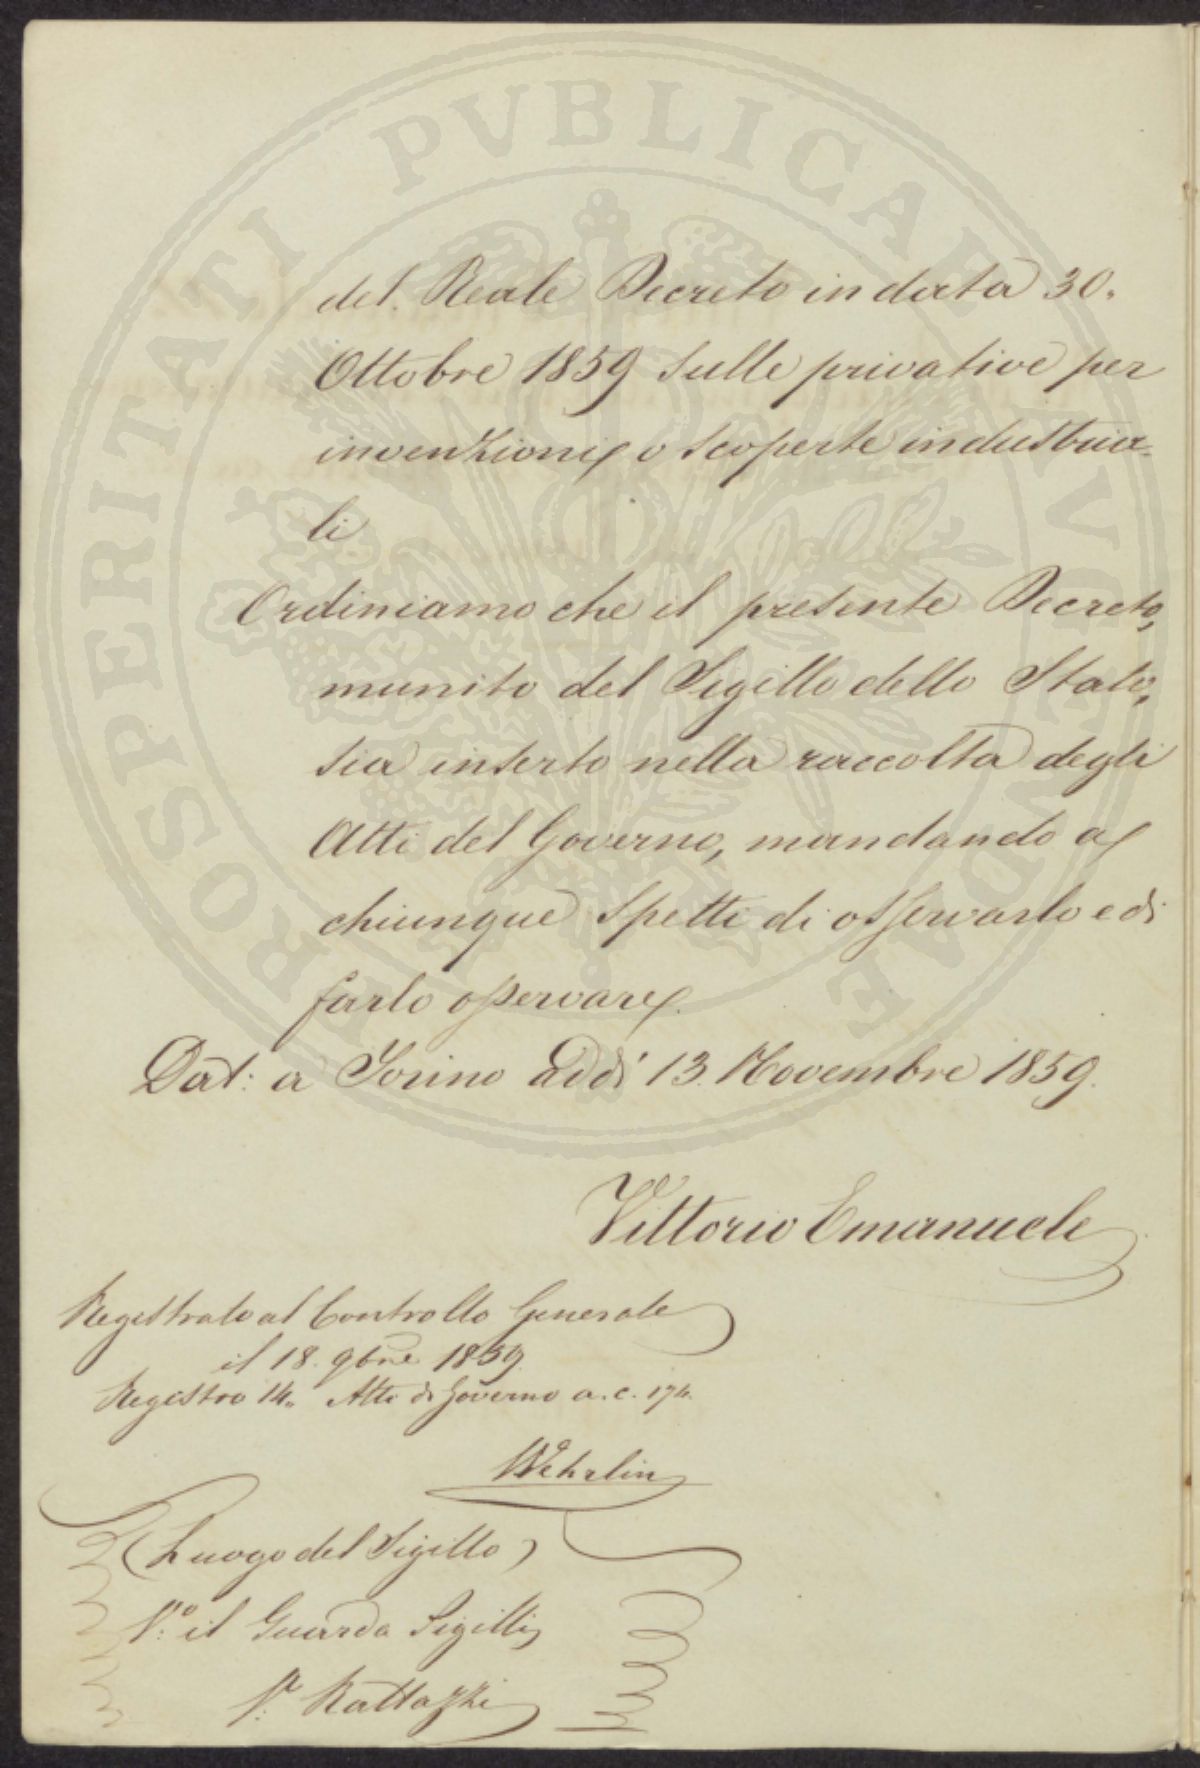 PROSPERITATI PVBLICAE AVGENDAE
del Reale Decreto in data 30.
Ottobre 1859 sulle privative per
invenzioni o scoperte industria-
li
Ordiniamo che il presente Decreto,
munito del Sigillo dello Stato,
sia inserto nella raccolta degli
Atti del Governo, mandando a
chiunque spetti di osservarlo e di
farlo osservare.
Dat: a Torino addì 13. Novembre 1859.
Vittorio Emanuele
Registrato al Controllo Generale
il 18. 9bre 1859.
Registro 14. Atti di Governo a. c. 174.
Wehrlin
(Luogo del Sigillo)
V.° il Guarda Sigilli
Rattazzi